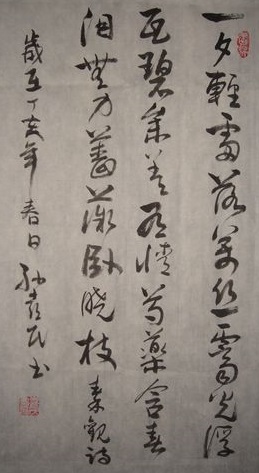 一夕輕雷落萬丝霽光浮
瓦碧參差有情芍藥含春
泪無力薔薇卧曉枝 秦觀詩
歲在丁亥年春日 孙民书